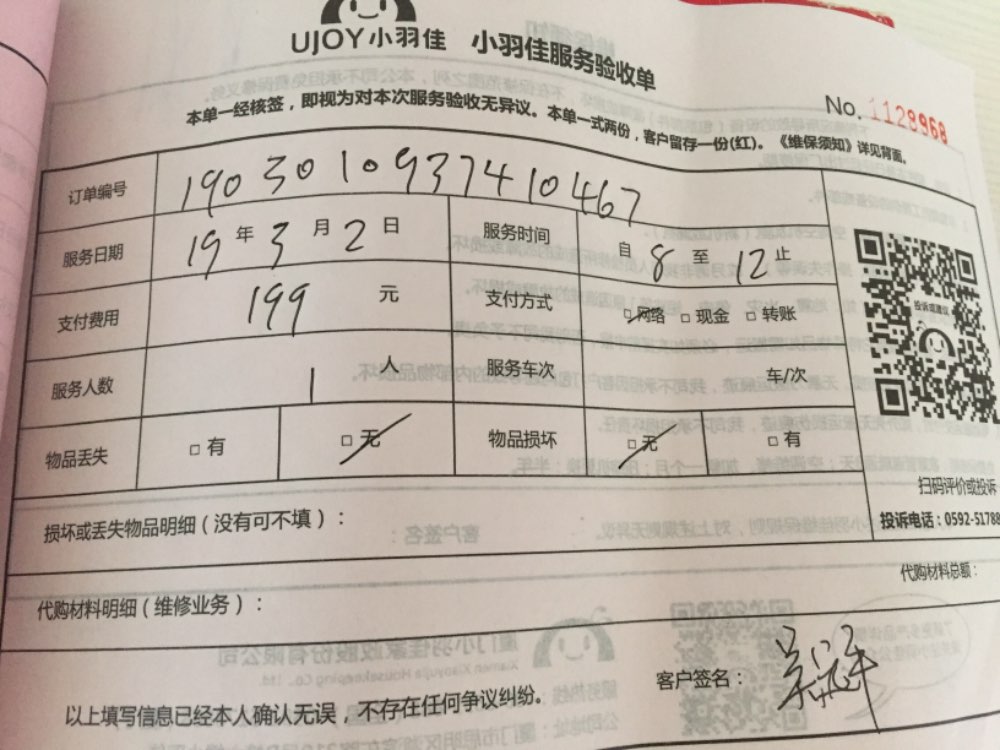 UJOY小羽佳 小羽佳服务验收单
No. 1128968
本单一经核签，即视为对本次服务验收无异议。本单一式两份，客户留存一份(红)。《维保须知》详见背面。
订单编号 1903010937410467
服务日期 19 年 3 月 2 日 服务时间 自 8 至 12 止
支付费用 199 元 支付方式 □网络 □现金 □转账
服务人数 1 人 服务车次 车/次
物品丢失 □有 □无 物品损坏 □无 □有
投诉或建议
扫码评价或投诉
投诉电话：0592-51788
损坏或丢失物品明细（没有可不填）：
代购材料明细（维修业务）： 代购材料总额：
以上填写信息已经本人确认无误，不存在任何争议纠纷。 客户签名：